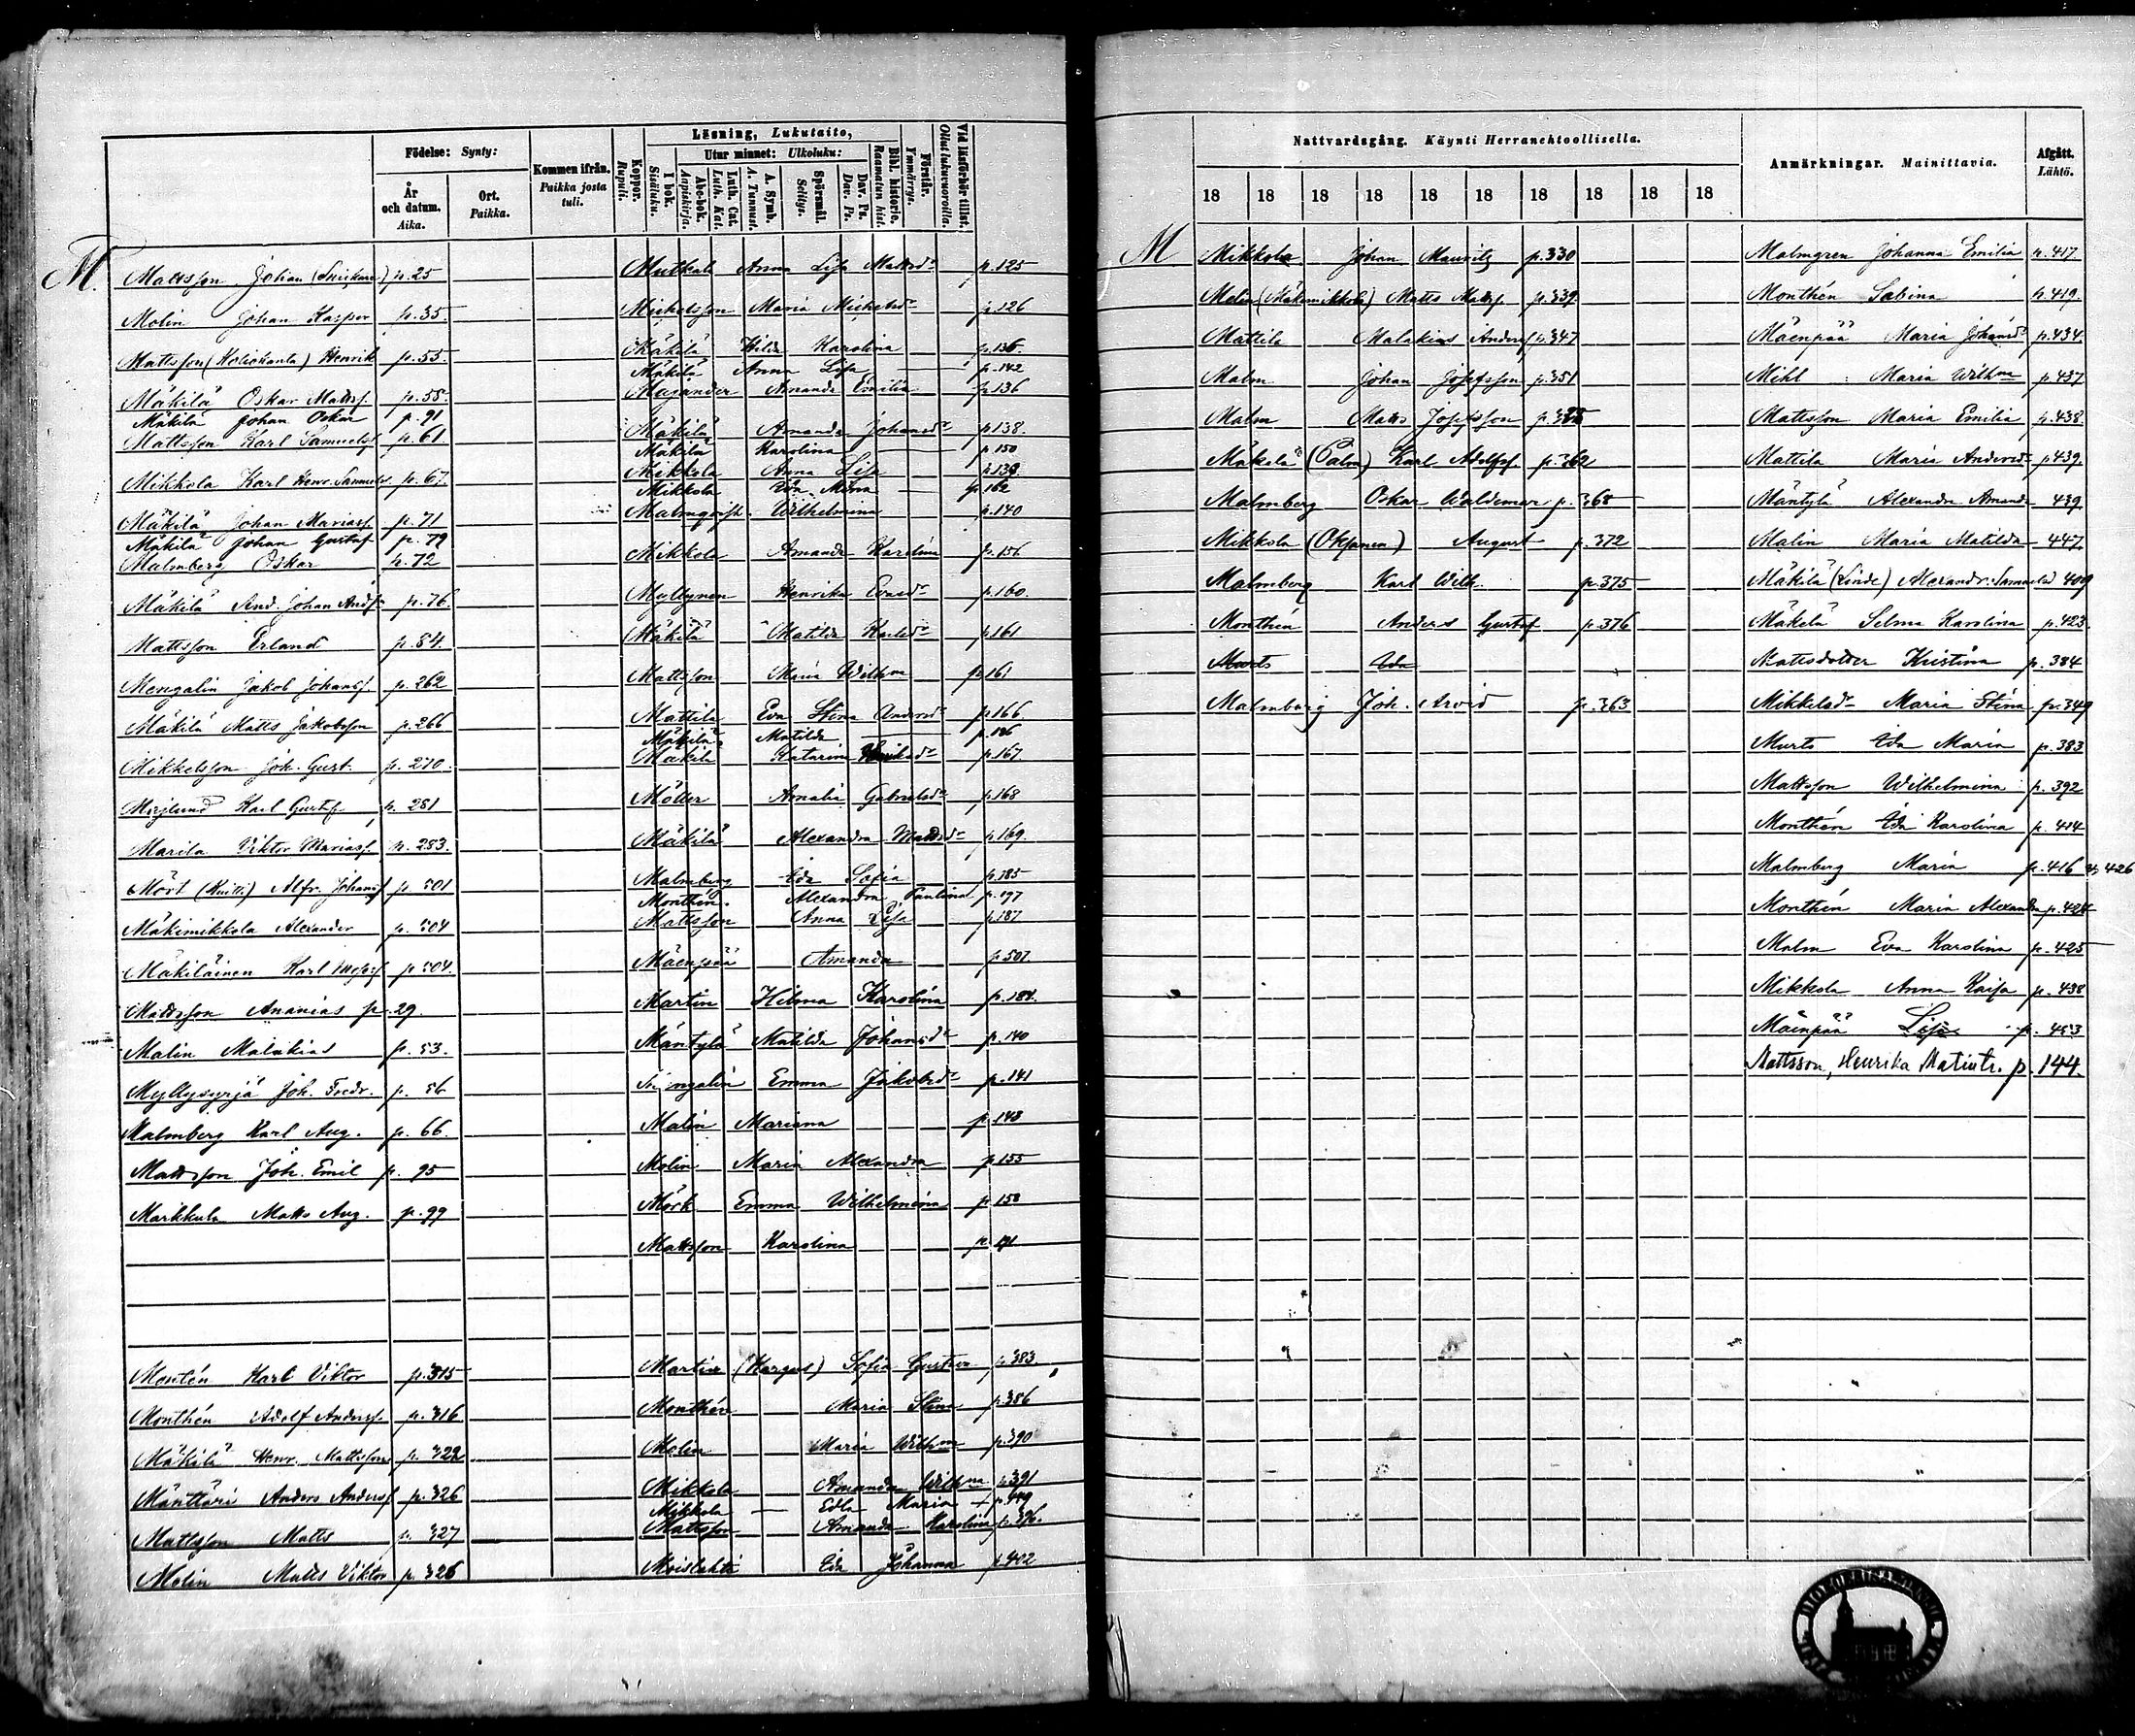 Födelse: Synty:
År och datum. Aika.
Ort. Paikka.
Kommen ifrån. Paikka josta tuli.
Koppor. Rupuli.
Läsning, Lukutaito,
I bok. Sisäluku.
Utur minnet: Ulkoluku:
Abc-bok. Aapiskirja.
Luth. Cat. Luth. Kat.
A. Symb. A. Tunnust.
Spörsmål. Selitys.
Dav. Ps. Dav. Ps.
Bibl. historie. Raamatun his.
Förstår. Ymmärrys.
Vid läsförhör tillst. Ollut lukuvuoroilla.
M.
Mattsson Johan (Snickare) p. 25
Molin Johan Kasper p. 35.
Mattsson Henrik p. 55.
Mäkilä Oskar Mattss. p. 58.
Mäkilä Johan Oskar p. 91
Mattsson Karl Samuelss. p. 61
Mikkola Karl Henr. Samuelss. p. 67.
Mäkilä Johan Mariass. p. 71
Mäkilä Johan Gustaf p. 79
Malmberg Oskar p. 72
Mäkilä And. Johan Andss. p. 76.
Mattsson Erland p. 84.
Mengalin Jakob Johanss. p. 262
Mäkilä Matts Jakobsson p. 266
Mikkelsson Joh. Gust. p. 270.
Karl Gustafss. p. 281
Marila Viktor Mariass. p. 283.
Mört Alfr. Johanss. p. 501
Mäkimikkola Alexander p. 504
Mäkiläinen Karl p. 504.
Mattsson Ananias p. 29.
Malin Malakias p. 53.
Myllysyrjä Joh. Fredr. p. 56
Malmberg Karl Aug. p. 66.
Mattsson Joh. Emil p. 95
Markkula Matts Aug. p. 99
Montén Karl Viktor p. 315
Monthén Adolf Anderss. p. 316
Mäkilä Henr. Mattsson p. 322
Mänttäri Anders Anderss. p. 326
Mattsson Matts p. 327
Molin Matts Viktor p. 326
Mutkala Anna Lisa Mattsdr p. 125
Mickelsson Maria Mickelsdr p. 126
Mäkilä Hilda Karolina p. 136.
Mäkilä Anna Lisa p. 142
Majander Amanda Emilia p. 136
Mäkilä Amanda Johansdr p. 138.
Mäkilä Karolina p. 150
Mikkola Anna Lisa p. 139
Mikkola Eva Maria p. 162
Malmqvist Wilhelmina p. 140
Mikkola Amanda Karolina p. 156
Myllynen Henrika Evasdr p. 160.
Mäkilä Matilda Karlsdr p. 161
Mattsson Maria Wilhma p. 161
Mattila Eva Stina Andersdr p. 166.
Mäkilä Matilda p. 186
Mäkilä Katarina Henriksdr p. 167.
Mötter Amalia Gabrielsdr p. 168
Mäkilä Alexandra Mattsdr p. 169.
Malmberg Ida Sofia p. 185
Monthén Alexandra Paulina p. 197
Mattsson Anna Lisa p. 187
Mäenpää Amanda p. 507
Martin Hilma Karolina p. 184.
Mäntylä Matilda Johansdr p. 140
Emma Jakobsdr p. 141
Malin Mariana p. 143
Molin Maria Alexandra p. 155
Mörk Emma Wilhelmina p. 158
Mattsson Karolina p. 171
Martin Sofia Gustava p. 383.
Monthén Maria Stina p. 386
Molin Maria Wilhma p. 390
Mikkola Amanda Wilhma p. 391
Mikkola Edla Maria p. 449
Mattsson Amanda Karolina p. 396.
Moislahti Ida Johanna p. 402
Nattvardsgång. Käynti Herranehtoollisella.
18 18 18 18 18 18 18 18 18 18
Anmärkningar. Mainittavia.
Afgått. Lähtö.
M
Mikkola Johan Mauritz p. 330
Molin (Mäkimikkola) Matts Matss. p. 339.
Mattila Malakias Anderss. p. 347
Malm Johan Josefsson p. 351
Malm Matts Josefsson
Mäkelä (Palm) Karl Adolfss. p. 362
Malmberg Oskar Waldemar p. 368
Mikkola (Oksanen) August p. 372
Malmberg Karl Wilh. p. 375
Monthén Anders Gustaf p. 376
Murts Ida
Malmberg Joh. Arvid p. 363
Malmgren Johanna Emilia p. 417
Monthén Sabina p. 419.
Mäenpää Maria Johansdr p. 434.
Mihl Maria Wilhma p. 437
Mattsson Maria Emilia p. 438.
Mattila Maria Andersdr p. 439.
Mäntylä Alexandra Amanda 439.
Malin Maria Matilda 447.
Mäkilä (Linde) Alexandr. Samuelsd 409
Mäkelä Selma Karolina p. 423.
Mattsdotter Kristina p. 384
Mikkelsdr Maria Stina p. 349
Murts Ida Maria p. 383
Mattsson Wilhelmina p. 392
Monthén Ida Karolina p. 414
Malmberg Maria p. 416 426
Monthén Maria Alexandra p. 424
Malm Eva Karolina p. 425
Mikkola Anna Kaisa p. 438
Mäenpää Lisa p. 453
Mattsson, Henrika Matintr. p. 144.